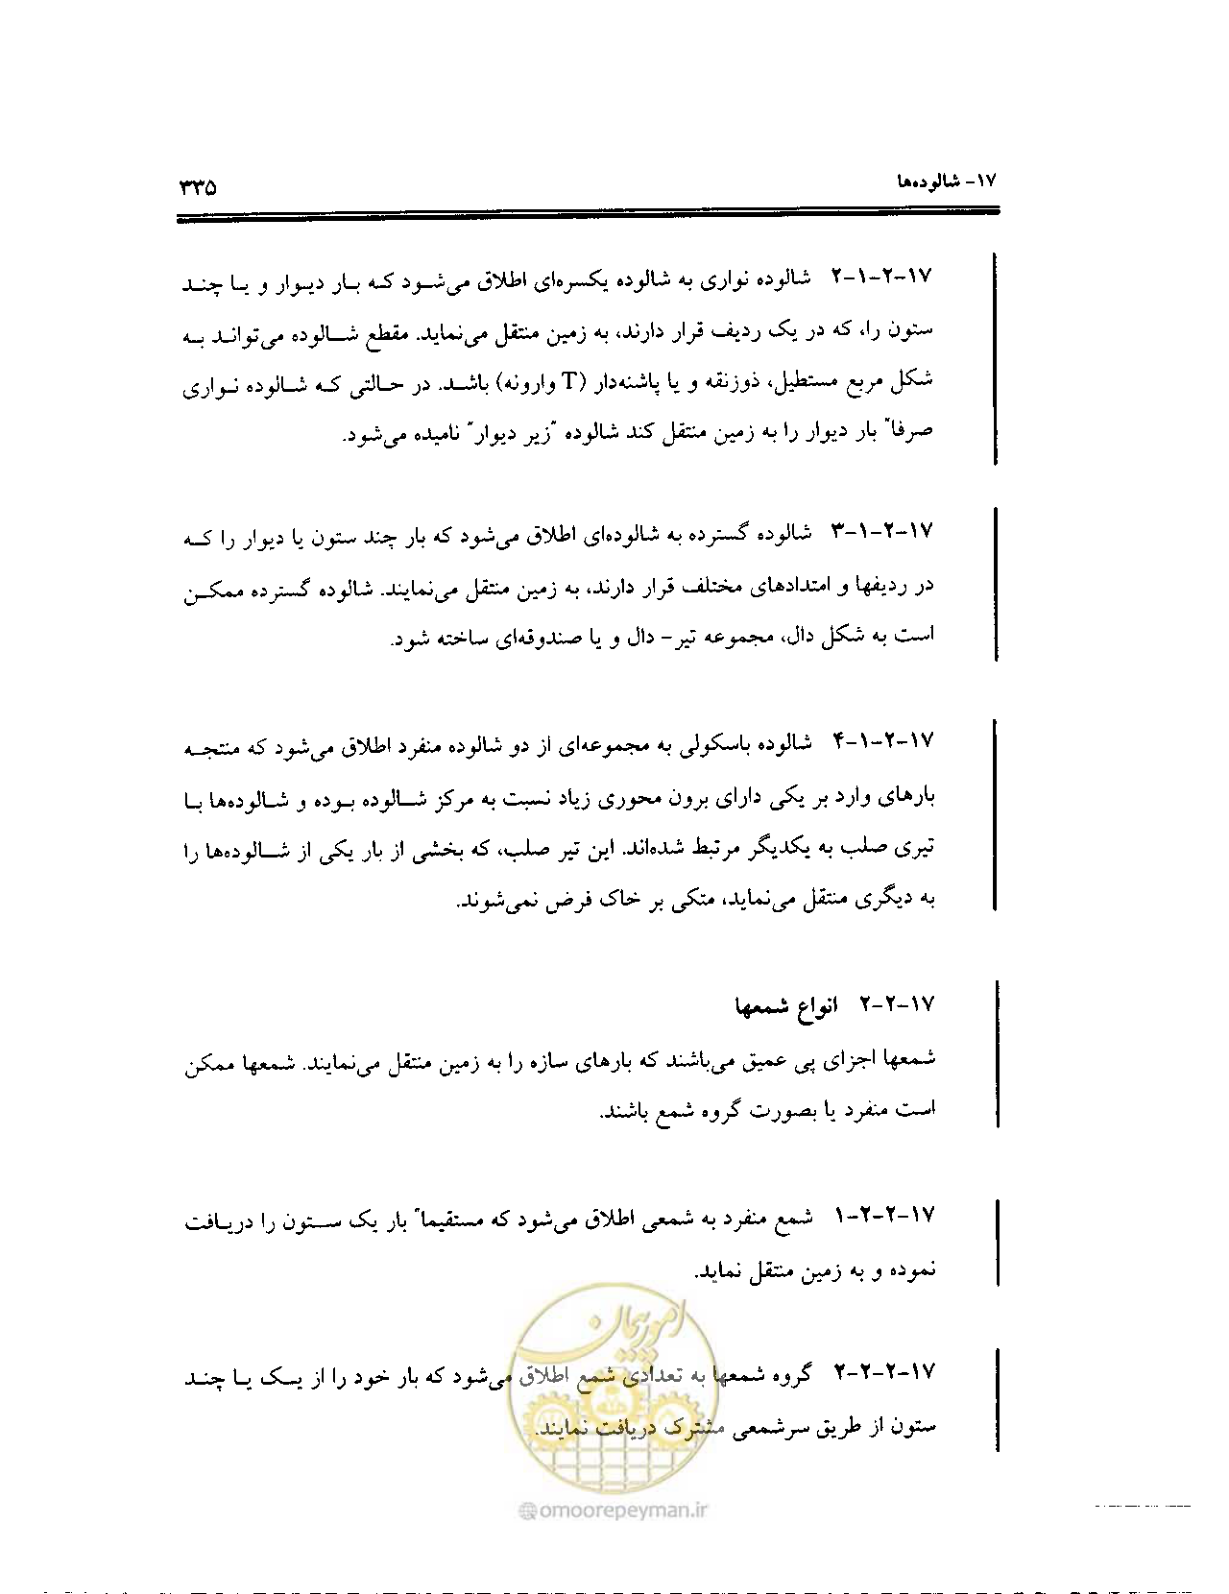 ۱۷- شالوده‌ها ۳۳۵
۱۷-۲-۱-۲ شالوده نواری به شالوده یکسره‌ای اطلاق می‌شود که بار دیوار و یا چند
ستون را، که در یک ردیف قرار دارند، به زمین منتقل می‌نماید. مقطع شالوده می‌تواند به
شکل مربع مستطیل، ذوزنقه و یا پاشنه‌دار (T وارونه) باشد. در حالتی که شالوده نواری
صرفا" بار دیوار را به زمین منتقل کند شالوده "زیر دیوار" نامیده می‌شود.
۱۷-۲-۱-۳ شالوده گسترده به شالوده‌ای اطلاق می‌شود که بار چند ستون یا دیوار را که
در ردیفها و امتدادهای مختلف قرار دارند، به زمین منتقل می‌نمایند. شالوده گسترده ممکن
است به شکل دال، مجموعه تیر- دال و یا صندوقه‌ای ساخته شود.
۱۷-۲-۱-۴ شالوده باسکولی به مجموعه‌ای از دو شالوده منفرد اطلاق می‌شود که منتجه
بارهای وارد بر یکی دارای برون محوری زیاد نسبت به مرکز شالوده بوده و شالوده‌ها با
تیری صلب به یکدیگر مرتبط شده‌اند. این تیر صلب، که بخشی از بار یکی از شالوده‌ها را
به دیگری منتقل می‌نماید، متکی بر خاک فرض نمی‌شوند.
۱۷-۲-۲ انواع شمعها
شمعها اجزای پی عمیق می‌باشند که بارهای سازه را به زمین منتقل می‌نمایند. شمعها ممکن
است منفرد یا بصورت گروه شمع باشند.
۱۷-۲-۲-۱ شمع منفرد به شمعی اطلاق می‌شود که مستقیما" بار یک ستون را دریافت
نموده و به زمین منتقل نماید.
۱۷-۲-۲-۲ گروه شمعها به تعدادی شمع اطلاق می‌شود که بار خود را از یک یا چند
ستون از طریق سرشمعی مشترک دریافت نمایند.
امور پیمان
@omoorepeyman.ir